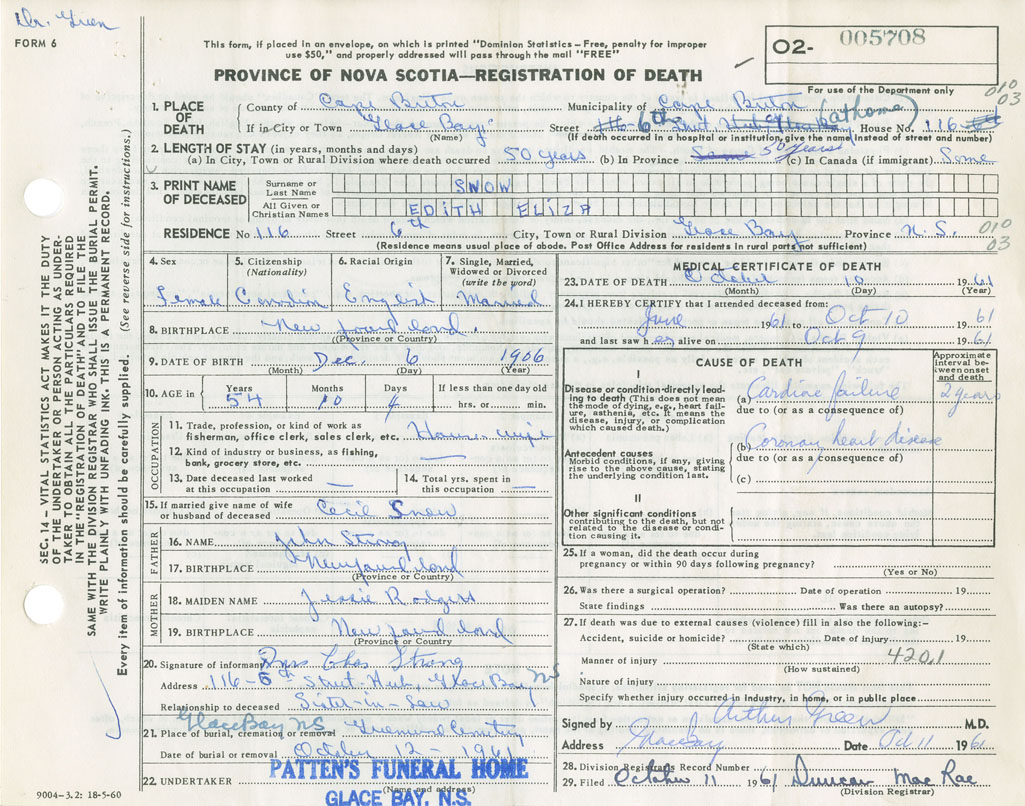 Dr. Green
FORM 6
This form, if placed in an envelope, on which is printed "Dominion Statistics—Free, penalty for improper
use $50," and properly addressed will pass through the mail "FREE"
02- 005708
For use of the Department only
PROVINCE OF NOVA SCOTIA—REGISTRATION OF DEATH
010
03
1. PLACE OF DEATH
County of Cape Breton Municipality of Cape Breton
If in City or Town "Glace Bay" Street 6th House No. 116
(Name) (If death occurred in a hospital or institution, give the name instead of street and number)
2. LENGTH OF STAY (in years, months and days)
(a) In City, Town or Rural Division where death occurred 50 years (b) In Province 50 years (c) In Canada (if immigrant) Same
3. PRINT NAME OF DECEASED
Surname or Last Name SNOW
All Given or Christian Names EDITH ELIZA
RESIDENCE No 116 Street 6th City, Town or Rural Division Glace Bay Province N.S.
010
03
(Residence means usual place of abode. Post Office Address for residents in rural parts not sufficient)
SEC. 14 – VITAL STATISTICS ACT MAKES IT THE DUTY
OF THE UNDERTAKER OR PERSON ACTING AS UNDER-
TAKER TO OBTAIN ALL THE PARTICULARS REQUIRED
IN THE "REGISTRATION OF DEATH" AND TO FILE THE
SAME WITH THE DIVISION REGISTRAR WHO SHALL ISSUE THE BURIAL PERMIT.
WRITE PLAINLY WITH UNFADING INK. THIS IS A PERMANENT RECORD.
Every item of information should be carefully supplied. (See reverse side for instructions.)
4. Sex Female
5. Citizenship (Nationality) Canadian
6. Racial Origin English
7. Single, Married, Widowed or Divorced (write the word) Married
8. BIRTHPLACE New found land
(Province or Country)
9. DATE OF BIRTH Dec. 6 1906
(Month) (Day) (Year)
10. AGE in Years 54 Months 10 Days 4 If less than one day old
hrs. or min.
OCCUPATION
11. Trade, profession, or kind of work as
fisherman, office clerk, sales clerk, etc. House-wife
12. Kind of industry or business, as fishing,
bank, grocery store, etc. —
13. Date deceased last worked
at this occupation —
14. Total yrs. spent in
this occupation —
15. If married give name of wife
or husband of deceased Cecil Snow
FATHER
16. NAME John Strong
17. BIRTHPLACE Newfoundland
(Province or Country)
MOTHER
18. MAIDEN NAME Jessie Rodgers
19. BIRTHPLACE New found land
(Province or Country)
20. Signature of informant Mrs Chas Strong
Address 116-6th Street, Glace Bay NS
Relationship to deceased Sister-in-Law
Glace Bay NS
21. Place of burial, cremation or removal Greenwood Cemetery
Date of burial or removal October 12-1961
22. UNDERTAKER PATTEN'S FUNERAL HOME
(Name and address)
GLACE BAY, N.S.
9004-3.2: 18-5-60
MEDICAL CERTIFICATE OF DEATH
23. DATE OF DEATH October 10 1961
(Month) (Day) (Year)
24. I HEREBY CERTIFY that I attended deceased from:
June 1961 to Oct 10 1961
and last saw h er alive on Oct 9 1961
CAUSE OF DEATH
Approximate interval between onset and death
I
Disease or condition directly lead-
ing to death (This does not mean
the mode of dying, e.g., heart fail-
ure, asthenia, etc. It means the
disease, injury, or complication
which caused death.)
(a) Cardiac failure 2 years
due to (or as a consequence of)
(b) Coronary heart disease
Antecedent causes
Morbid conditions, if any, giving
rise to the above cause, stating
the underlying condition last.
due to (or as a consequence of)
(c)
II
Other significant conditions
contributing to the death, but not
related to the disease or condi-
tion causing it.
25. If a woman, did the death occur during
pregnancy or within 90 days following pregnancy?
(Yes or No)
26. Was there a surgical operation? Date of operation 19
State findings Was there an autopsy?
27. If death was due to external causes (violence) fill in also the following:-
Accident, suicide or homicide? Date of injury 19
(State which)
Manner of injury 420.1
(How sustained)
Nature of injury
Specify whether injury occurred in Industry, in home, or in public place
Signed by Arthur Green M.D.
Address Glace Bay Date Oct 11 1961
28. Division Registrars Record Number
29. Filed October 11 1961 Duncan MacRae
(Division Registrar)